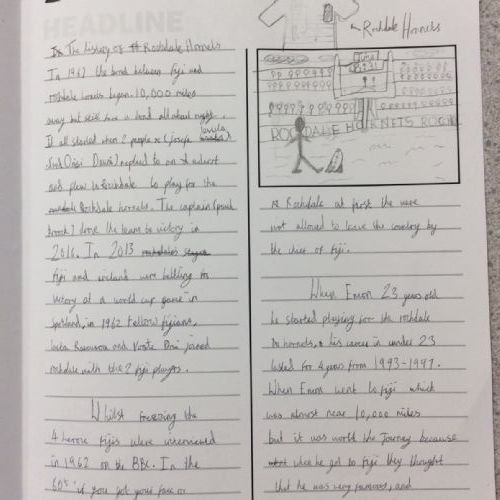 HEADLINE
The history of Rochdale Hornets
In 1962 the bond between Fiji and
rochdale hornets began. 10,000 miles
away but still have a bond all about rugby.
It all started when 2 people (Josefa Levula
and Orisi Dawai) replied to an advert
and flew to Rochdale to play for the
Rochdale hornets. The captain (paul
) drove the team to victory in
2016. In 2013
Fiji and ireland were battling for
victory at a world cup game in
in 1962 Fellow fijians,
Laita Ravouvou and Voate Drui joined
rochdale with the 2 fiji players.
Whilst freezing the
4 heroic fijis were interviewed
in 1962 on the BBC. In the
60s if you got your face on
Rochdale Hornets
Final
ROCHDALE HORNETS ROCK
Rochdale at first the were
not allowed to leave the country by
the chief of fiji.
When Emon 23 years old
he started playing for the rochdale
hornets, his career in under 23
lasted for 4 years from 1993-1997.
When Emon went to fiji which
was almost near 10,000 miles
but it was world the Journey because
when he got to fiji they thought
that he was very famous, and